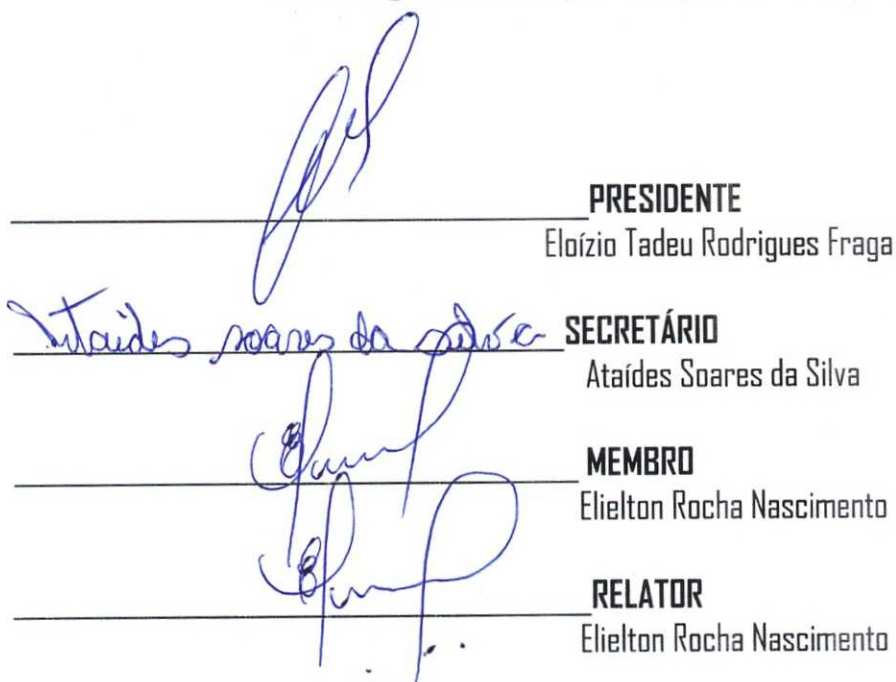 PRESIDENTE
Eloízio Tadeu Rodrigues Fraga
Ataídes soares da silva SECRETÁRIO
Ataídes Soares da Silva
MEMBRO
Elielton Rocha Nascimento
RELATOR
Elielton Rocha Nascimento